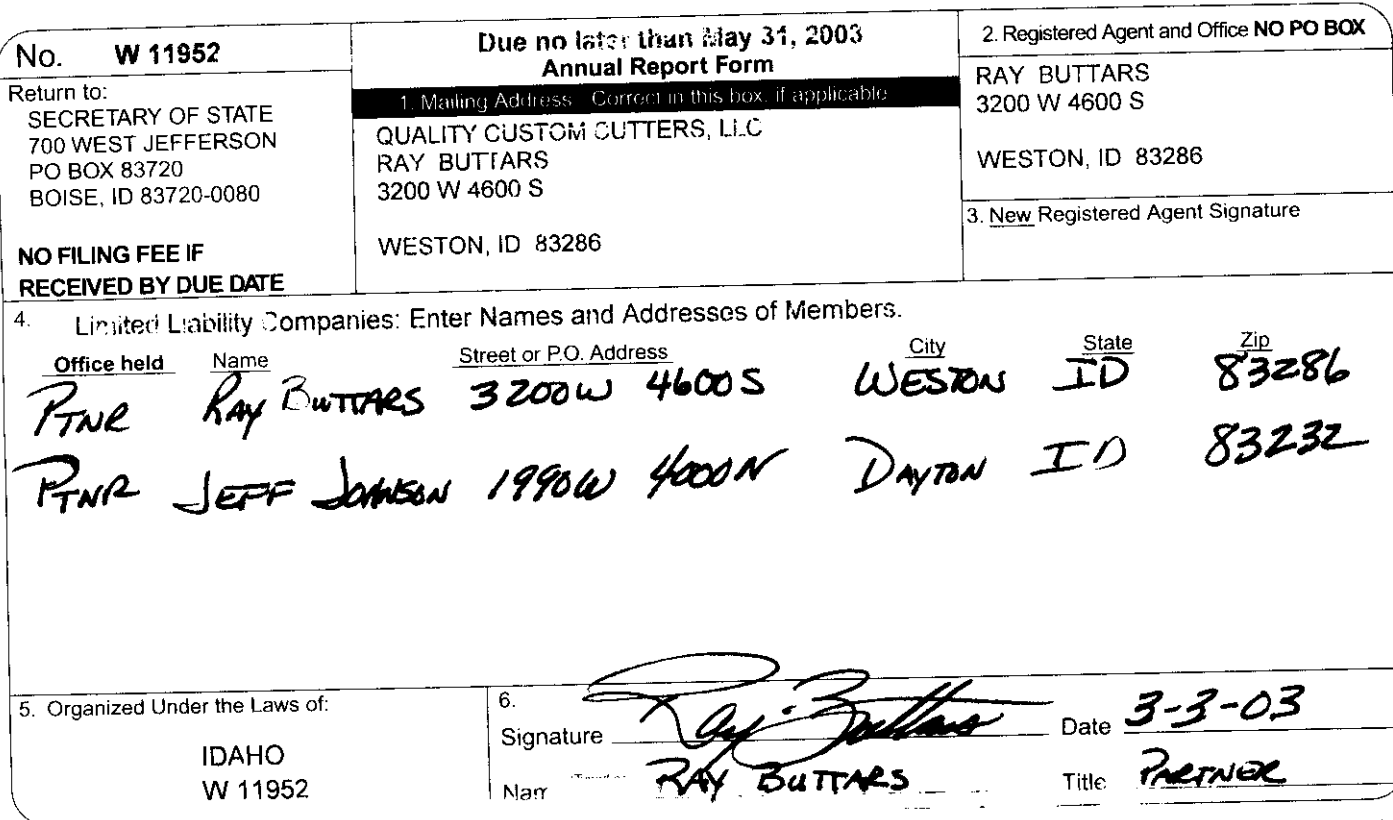 No. W 11952
Return to:
SECRETARY OF STATE
700 WEST JEFFERSON
PO BOX 83720
BOISE, ID 83720-0080
NO FILING FEE IF
RECEIVED BY DUE DATE
Due no later than May 31, 2003
Annual Report Form
1. Mailing Address Correct in this box, if applicable
QUALITY CUSTOM CUTTERS, LLC
RAY BUTTARS
3200 W 4600 S
WESTON, ID 83286
2. Registered Agent and Office NO PO BOX
RAY BUTTARS
3200 W 4600 S
WESTON, ID 83286
3. New Registered Agent Signature
4. Limited Liability Companies: Enter Names and Addresses of Members.
Office held Name Street or P.O. Address City State Zip
PTNR RAY BUTTARS 3200W 4600S WESTON ID 83286
PTNR JEFF JOHNSON 1990W 4000N DAYTON ID 83232
5. Organized Under the Laws of:
IDAHO
W 11952
6.
Signature Ray Buttars Date 3-3-03
Nam RAY BUTTARS Title PARTNER